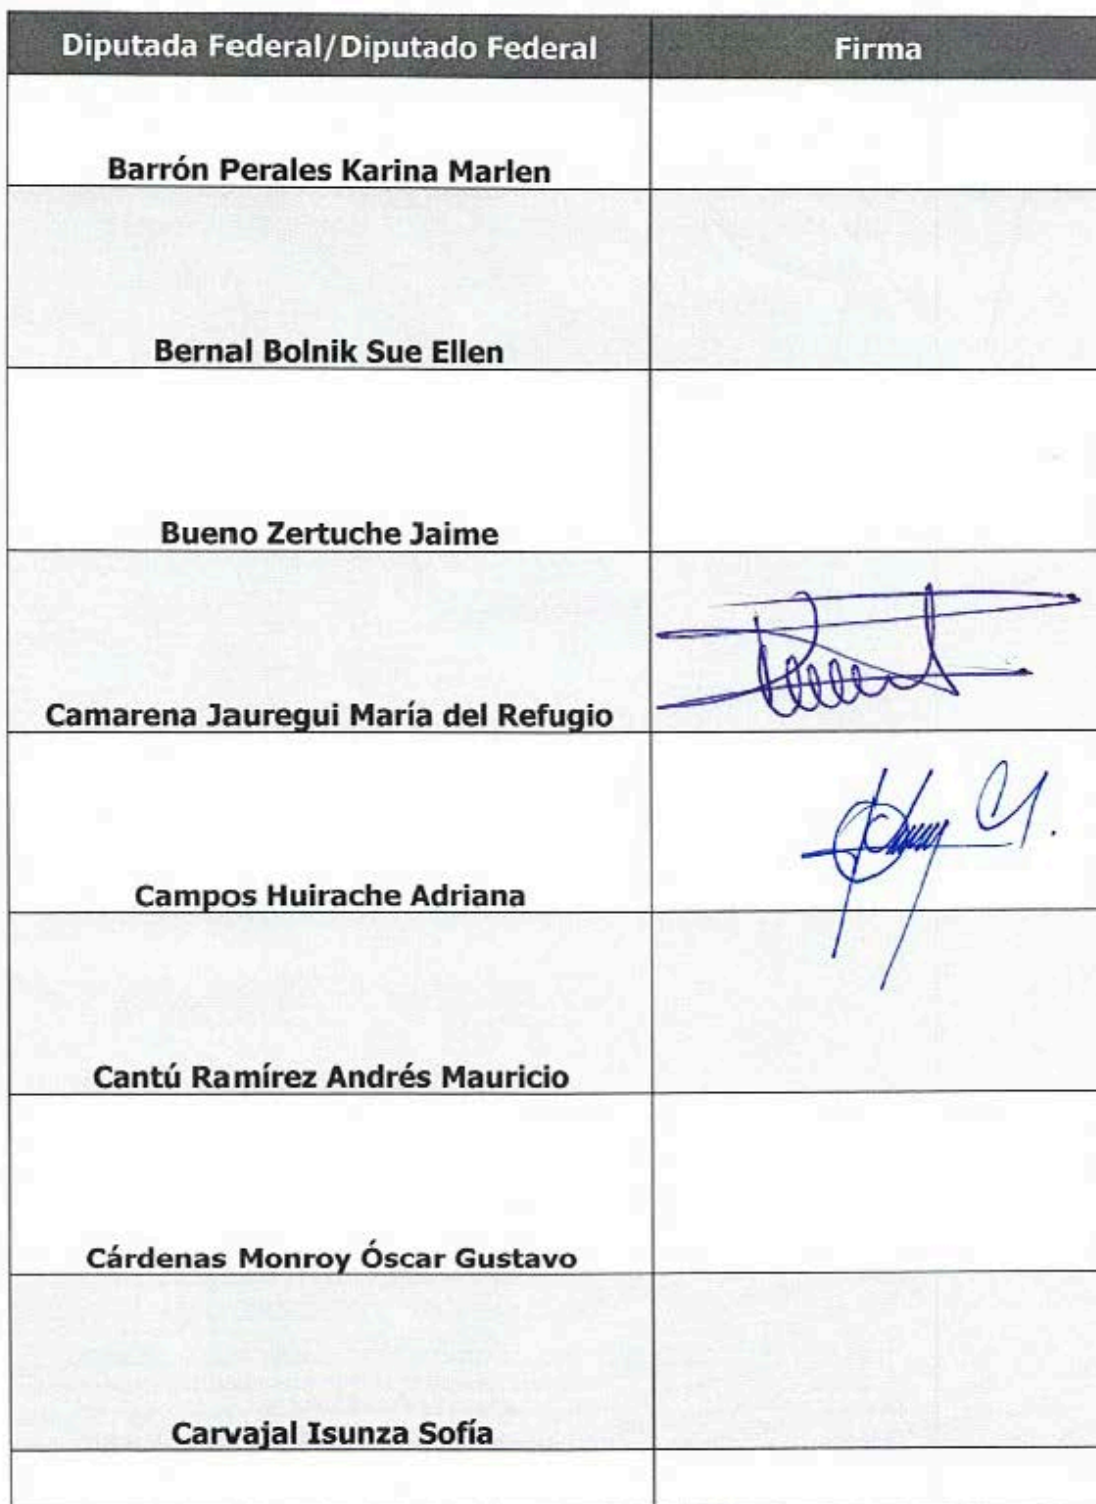 Diputada Federal/Diputado Federal Firma
Barrón Perales Karina Marlen
Bernal Bolnik Sue Ellen
Bueno Zertuche Jaime
Camarena Jauregui María del Refugio
Campos Huirache Adriana
Cantú Ramírez Andrés Mauricio
Cárdenas Monroy Óscar Gustavo
Carvajal Isunza Sofía